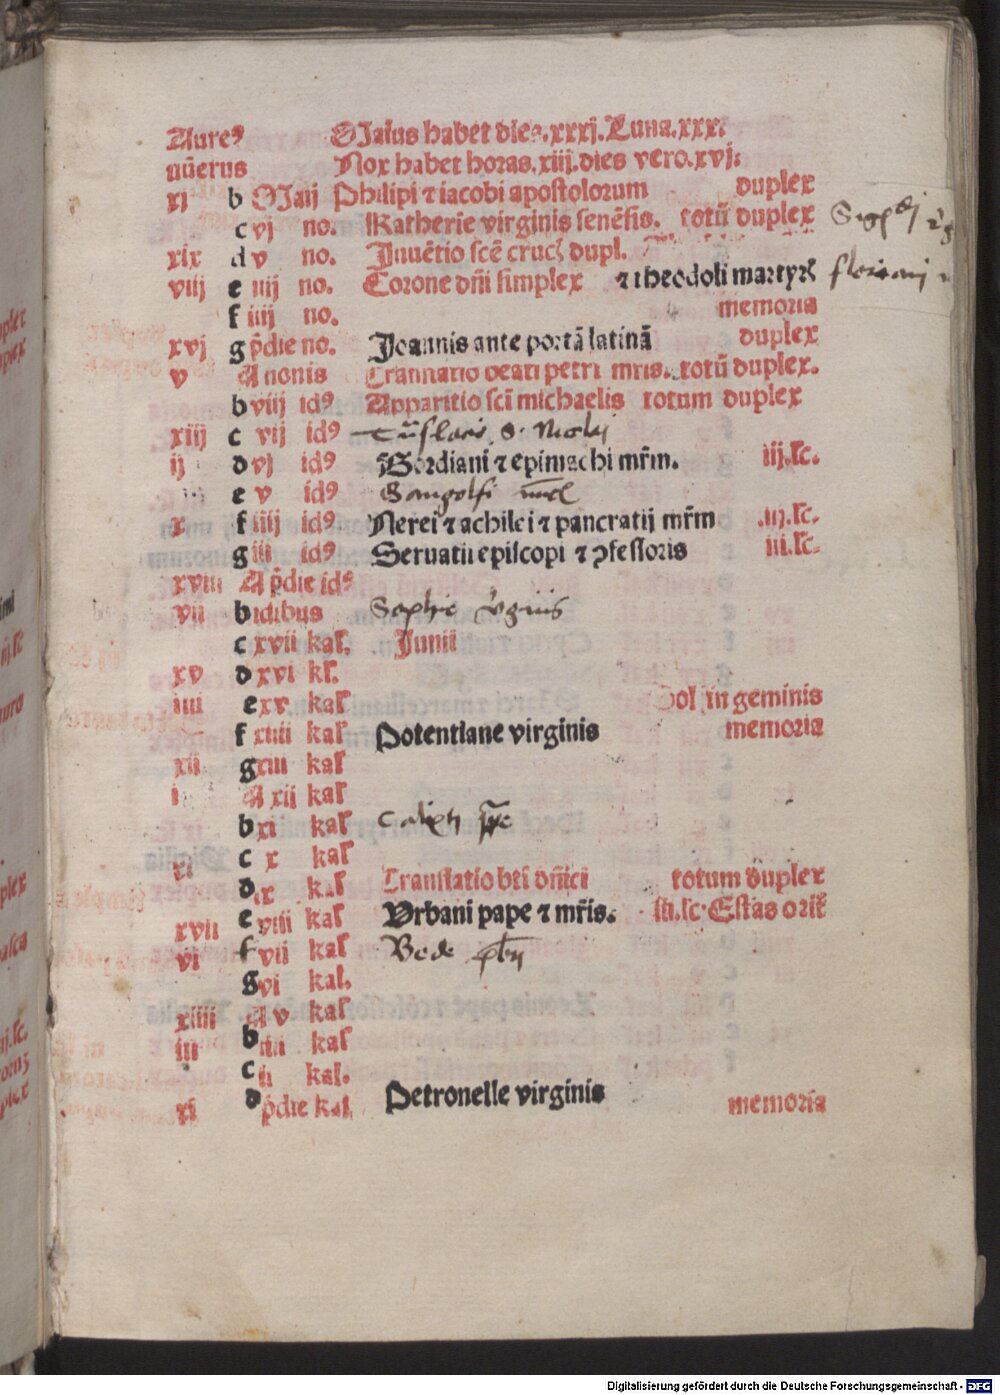 Aureꝰ Maius habet dies.xxxj.Luna.xxx.
nūerus Nox habet horas.xiij.dies vero.xvj.
xj b Maij Philipi ⁊ iacobi apostolorum duplex
c vj no. Katherie virginis senēsis. totū duplex
xix d v no. Inuētio scē cruc dupl.
viij e iiij no. Corone dn̄i simplex ⁊ theodoli martyrꝭ floriani
f iiij no. memoria
xvj g p̄die no. Joannis ante portā latinā duplex
v A nonis Trannatio beati petri mr̄is. totū duplex.
b viij idꝰ Apparitio scī michaelis totum duplex
xiij c vij idꝰ
ij d vj idꝰ Gordiani ⁊ epimachi mr̄m. iij.lc.
e v idꝰ Gangolfi
x f iiij idꝰ Nerei ⁊ achilei ⁊ pancratij mr̄m .iij.lc.
g iij idꝰ Seruatii episcopi ⁊ ꝯfessoris iii.lc.
xviii A p̄die idꝰ
vii b idibus Sophie v̄ginis
c xvii kal. Junii
xv d xvi kl.
iiii e xv kal Sol in geminis
f xiiii kal Potentiane virginis memoria
xii g xiii kal
i A xii kal
b xi kal Calixti pp̄e
xi c x kal
d ix kal Translatio bt̄i dn̄ici totum duplex
xvii e viii kal Vrbani pape ⁊ mr̄is. iii.lc. Estas orit̄
vi f vii kal Bede pb̄ri
g vi kal.
xiiii A v kal
iii b iiii kal
c ii kal.
xi d p̄die kal. Petronelle virginis memoria
Digitalisierung gefördert durch die Deutsche Forschungsgemeinschaft - DFG